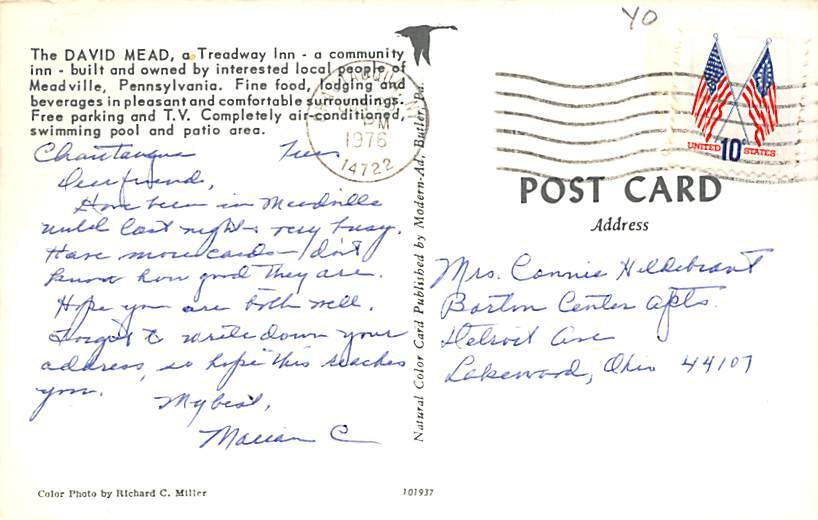 YO
The DAVID MEAD, a Treadway Inn - a community
inn - built and owned by interested local people of
Meadville, Pennsylvania. Fine food, lodging and
beverages in pleasant and comfortable surroundings.
Free parking and T.V. Completely air-conditioned,
swimming pool and patio area.
PM
1976
14722
UNITED 10c STATES
POST CARD
Address
Chautauqua Tues
Dear friend,
Have been in Meadville
until last night - very busy.
Have more cards - don't
know how good they are.
Hope you are both well.
Forgot to write down your
address, so hope this reaches
you.
My best,
Marian C
Mrs. Connie Hildebrant
Barton Center apts.
Detroit Ave
Lakewood, Ohio 44107
Natural Color Card Published by Modern-Ad, Butler, Pa.
Color Photo by Richard C. Miller
101937